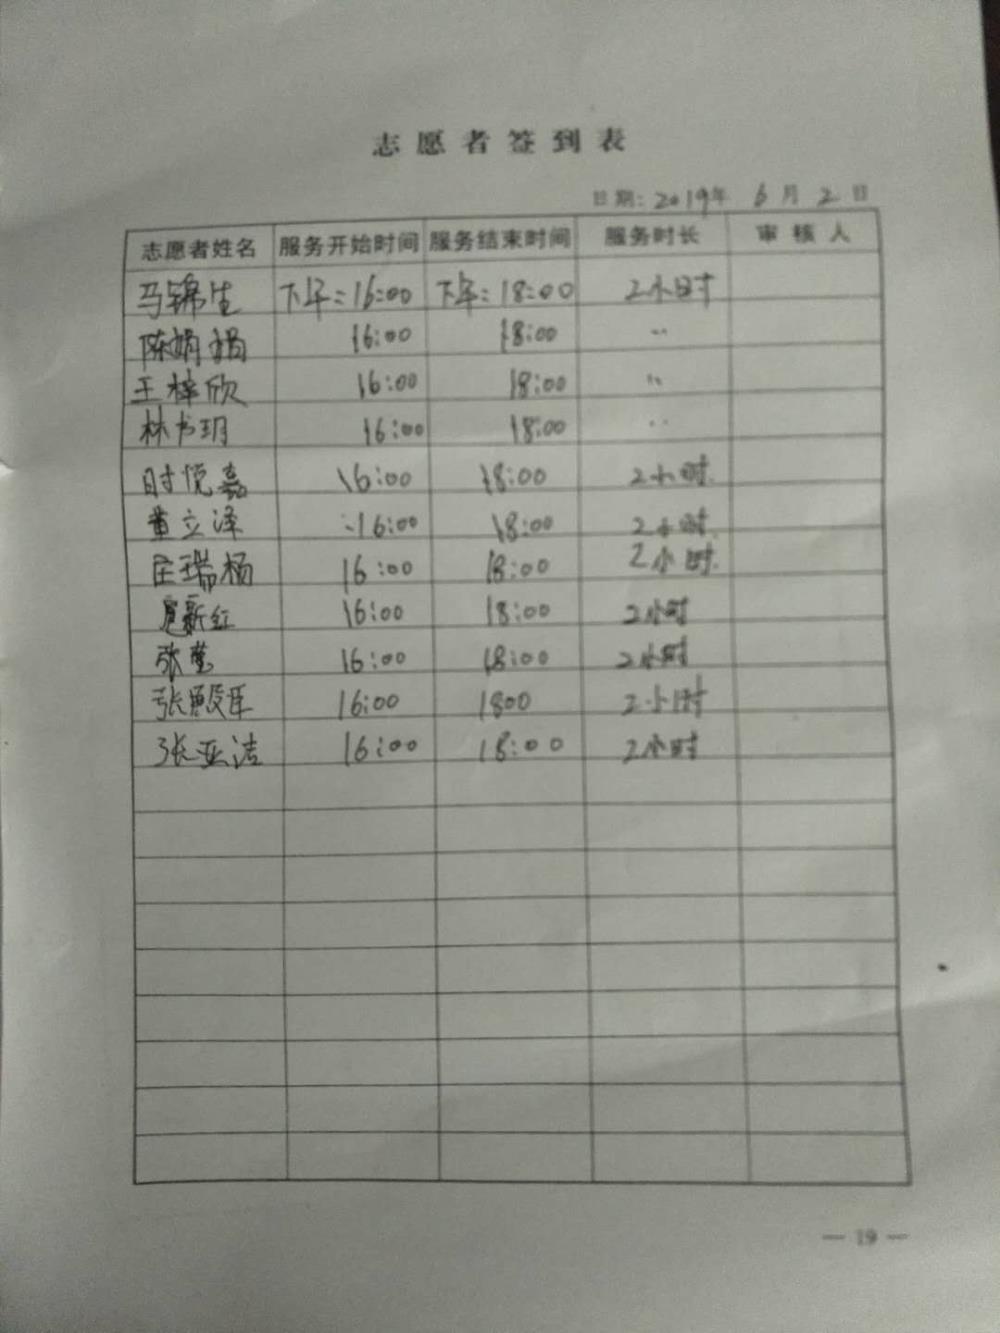 志愿者签到表
日期: 2019年 6月 2日
志愿者姓名 服务开始时间 服务结束时间 服务时长 审核人
马锦生 下午:16:00 下午:18:00 2小时
陈娟娟 16:00 18:00 〃
王梓欣 16:00 18:00 〃
林书玥 16:00 18:00 〃
时悦嘉 16:00 18:00 2小时.
董立泽 16:00 18:00 2小时.
庄瑞杨 16:00 18:00 2小时.
新红 16:00 18:00 2小时
张莹 16:00 18:00 2小时
张殿军 16:00 1800 2小时
张亚洁 16:00 18:00 2小时
— 19 —